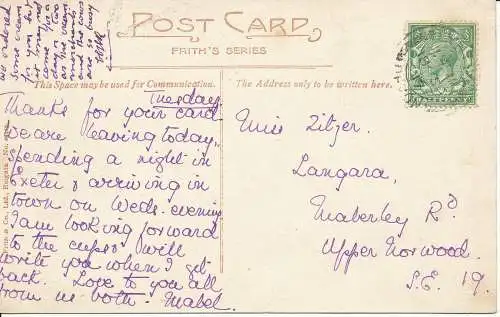 POST CARD
FRITH'S SERIES
This Space may be used for Communication.
The Address only to be written here.
Tuesday
Thanks for your card
We are leaving today,
spending a night in
Exeter & arriving in
town on Weds. evening
I am looking forward
to the cups & will
write you when I get
back. Love to you all
from us both. Mabel.
Miss Zitzer.
Langara,
Maberley Rd
Upper Norwood.
S.E. 19.
We ordered
some cream
for you but
it may not
come for a
day or two
as the
and the cows
are so busy
Frith & Co., Ltd., Reigate. No.